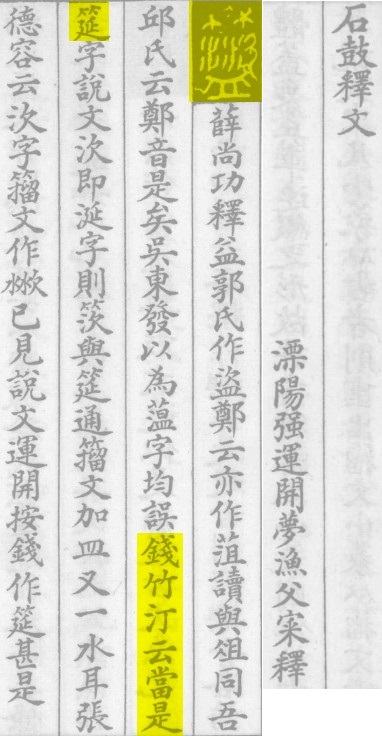 石鼓釋文
溧陽强運開夢漁父宷釋
薛尚功釋益郭氏作盜鄭云亦作葅讀與俎同吾
邱氏云鄭音是矣吳東發以為薀字均誤錢竹汀云當是
筵字說文㳄即涎字則茨與筵通籀文加皿又一水耳張
德容云㳄字籀文作已見說文運開按錢作筵甚是